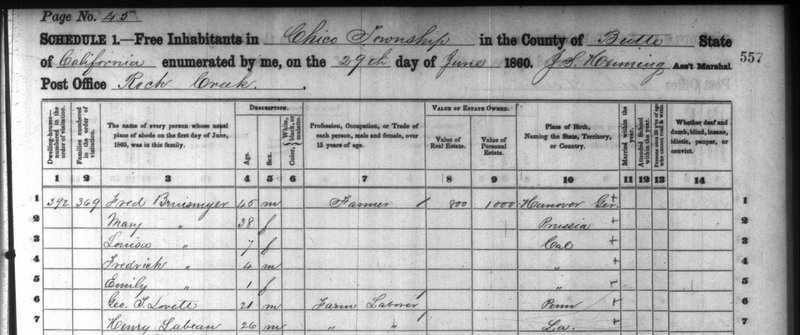 Page No. 45
SCHEDULE 1.—Free Inhabitants in Chico Township in the County of Butte State
of California enumerated by me, on the 29th day of June 1860. J. S. Henning Ass't Marshal. 557
Post Office Rock Creek.
DESCRIPTION. VALUE OF ESTATE OWNED.
Dwelling-houses— numbered in the order of visitation. Families numbered in the order of visitation. The name of every person whose usual place of abode on the first day of June, 1860, was in this family. Age. Sex. Color, White, black, or mulatto. Profession, Occupation, or Trade of each person, male and female, over 15 years of age. Value of Real Estate. Value of Personal Estate. Place of Birth, Naming the State, Territory, or Country. Married within the year. Attended School within the year. Persons over 20 y'rs of age who cannot read & write. Whether deaf and dumb, blind, insane, idiotic, pauper, or convict.
1 2 3 4 5 6 7 8 9 10 11 12 13 14
1 392 369 Fred Bruismyer 45 m Farmer 800 1000 Hanover Ger. 1
2 Mary " 38 f Prussia 2
3 Louisa " 7 f Cal 3
4 Fredrick " 4 m " 4
5 Emily " 1 f " 5
6 Geo. T. Lovett 21 m Farm Laborer Penn 6
7 Henry Sabean 26 m " " La. 7